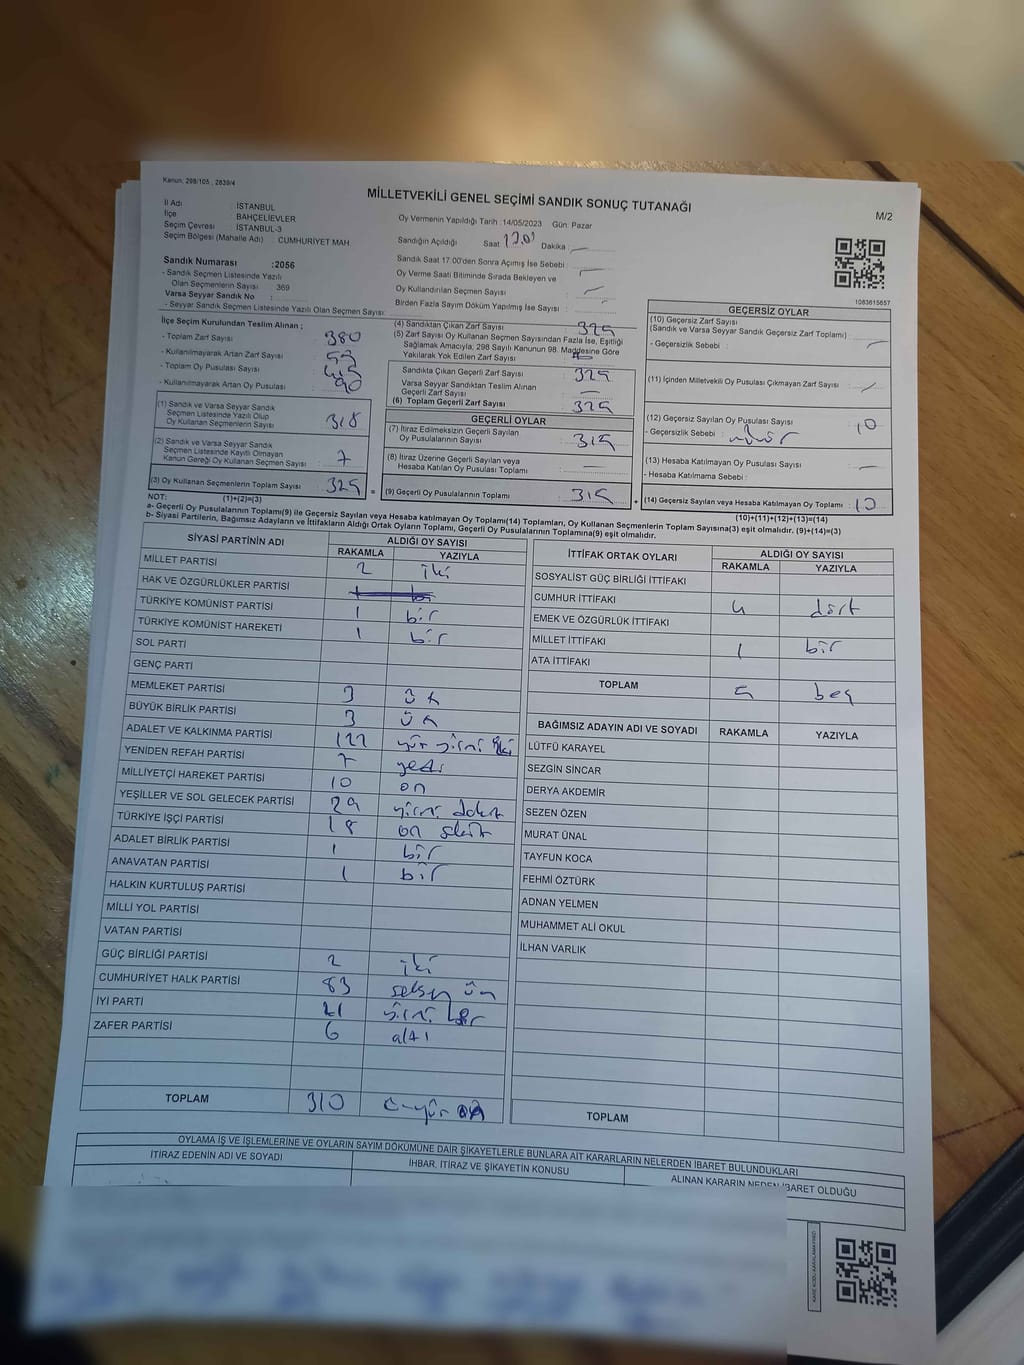 Kanun: 298/105 , 2839/4
MİLLETVEKİLİ GENEL SEÇİMİ SANDIK SONUÇ TUTANAĞI
M/2
İl Adı : İSTANBUL
İlçe : BAHÇELİEVLER
Seçim Çevresi : İSTANBUL-3
Seçim Bölgesi (Mahalle Adı) : CUMHURİYET MAH.
Oy Vermenin Yapıldığı Tarih :14/05/2023 Gün: Pazar
Sandığın Açıldığı Saat Dakika :
Sandık Saat 17.00'den Sonra Açımış İse Sebebi :
Oy Verme Saati Bitiminde Sırada Bekleyen ve
Oy Kullandırılan Seçmen Sayısı :
Birden Fazla Sayım Döküm Yapılmış İse Sayısı :
Sandık Numarası :2056
- Sandık Seçmen Listesinde Yazılı
Olan Seçmenlerin Sayısı : 369
Varsa Seyyar Sandık No :
- Seyyar Sandık Seçmen Listesinde Yazılı Olan Seçmen Sayısı:
1083615657
İlçe Seçim Kurulundan Teslim Alınan ;
- Toplam Zarf Sayısı : 380
- Kullanılmayarak Artan Zarf Sayısı :
- Toplam Oy Pusulası Sayısı : 415
- Kullanılmayarak Artan Oy Pusulası : 90
(1) Sandık ve Varsa Seyyar Sandık
Seçmen Listesinde Yazılı Olup
Oy Kullanan Seçmenlerin Sayısı : 318
(2) Sandık ve Varsa Seyyar Sandık
Seçmen Listesinde Kayıtlı Olmayan
Kanun Gereği Oy Kullanan Seçmen Sayısı : 7
(3) Oy Kullanan Seçmenlerin Toplam Sayısı : 325
(1)+(2)=(3)
(4) Sandıktan Çıkan Zarf Sayısı : 325
(5) Zarf Sayısı Oy Kullanan Seçmen Sayısından Fazla İse, Eşitliği
Sağlamak Amacıyla; 298 Sayılı Kanunun 98. Maddesine Göre
Yakılarak Yok Edilen Zarf Sayısı :
Sandıkta Çıkan Geçerli Zarf Sayısı : 325
Varsa Seyyar Sandıktan Teslim Alınan
Geçerli Zarf Sayısı :
(6) Toplam Geçerli Zarf Sayısı : 325
GEÇERLİ OYLAR
(7) İtiraz Edilmeksizin Geçerli Sayılan
Oy Pusulalarının Sayısı : 315
(8) İtiraz Üzerine Geçerli Sayılan veya
Hesaba Katılan Oy Pusulası Toplamı :
= (9) Geçerli Oy Pusulalarının Toplamı : 315
GEÇERSİZ OYLAR
(10) Geçersiz Zarf Sayısı
(Sandık ve Varsa Seyyar Sandık Geçersiz Zarf Toplamı)
- Geçersizlik Sebebi :
(11) İçinden Milletvekili Oy Pusulası Çıkmayan Zarf Sayısı :
(12) Geçersiz Sayılan Oy Pusulası Sayısı : 10
- Geçersizlik Sebebi : mühür
(13) Hesaba Katılmayan Oy Pusulası Sayısı :
- Hesaba Katılmama Sebebi :
+ (14) Geçersiz Sayılan veya Hesaba Katılmayan Oy Toplamı : 10
(10)+(11)+(12)+(13)=(14)
NOT:
a- Geçerli Oy Pusulalarının Toplamı(9) ile Geçersiz Sayılan veya Hesaba katılmayan Oy Toplamı(14) Toplamları, Oy Kullanan Seçmenlerin Toplam Sayısına(3) eşit olmalıdır. (9)+(14)=(3)
b- Siyasi Partilerin, Bağımsız Adayların ve İttifakların Aldığı Ortak Oyların Toplamı, Geçerli Oy Pusulalarının Toplamına(9) eşit olmalıdır.
SİYASİ PARTİNİN ADI ALDIĞI OY SAYISI
RAKAMLA YAZIYLA
MİLLET PARTİSİ 2 iki
HAK VE ÖZGÜRLÜKLER PARTİSİ
TÜRKİYE KOMÜNİST PARTİSİ 1 bir
TÜRKİYE KOMÜNİST HAREKETİ 1 bir
SOL PARTİ
GENÇ PARTİ
MEMLEKET PARTİSİ 3 üç
BÜYÜK BİRLİK PARTİSİ 3 üç
ADALET VE KALKINMA PARTİSİ 122 yüz yirmi iki
YENİDEN REFAH PARTİSİ 7 yedi
MİLLİYETÇİ HAREKET PARTİSİ 10 on
YEŞİLLER VE SOL GELECEK PARTİSİ 29 yirmi dokuz
TÜRKİYE İŞÇİ PARTİSİ 18 on sekiz
ADALET BİRLİK PARTİSİ 1 bir
ANAVATAN PARTİSİ 1 bir
HALKIN KURTULUŞ PARTİSİ
MİLLİ YOL PARTİSİ
VATAN PARTİSİ
GÜÇ BİRLİĞİ PARTİSİ 2 iki
CUMHURİYET HALK PARTİSİ 83 seksen üç
İYİ PARTİ 21 yirmi bir
ZAFER PARTİSİ 6 altı
TOPLAM 310 üçyüz on
İTTİFAK ORTAK OYLARI ALDIĞI OY SAYISI
RAKAMLA YAZIYLA
SOSYALİST GÜÇ BİRLİĞİ İTTİFAKI
CUMHUR İTTİFAKI 4 dört
EMEK VE ÖZGÜRLÜK İTTİFAKI
MİLLET İTTİFAKI 1 bir
ATA İTTİFAKI
TOPLAM 5 beş
BAĞIMSIZ ADAYIN ADI VE SOYADI RAKAMLA YAZIYLA
LÜTFÜ KARAYEL
SEZGİN SİNCAR
DERYA AKDEMİR
SEZEN ÖZEN
MURAT ÜNAL
TAYFUN KOCA
FEHMİ ÖZTÜRK
ADNAN YELMEN
MUHAMMET ALİ OKUL
İLHAN VARLIK
TOPLAM
OYLAMA İŞ VE İŞLEMLERİNE VE OYLARIN SAYIM DÖKÜMÜNE DAİR ŞİKAYETLERLE BUNLARA AİT KARARLARIN NELERDEN İBARET BULUNDUKLARI
İTİRAZ EDENİN ADI VE SOYADI
İHBAR, İTİRAZ VE ŞİKAYETİN KONUSU
ALINAN KARARIN NEDEN İBARET OLDUĞU